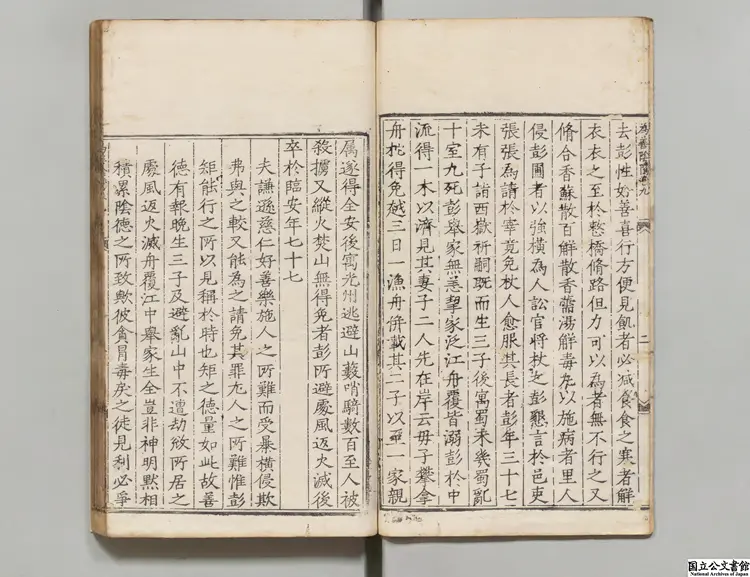 去彭性好善喜行方便見飢者必減食食之寒者解
衣衣之至於整橋脩路但力可以為者無不行之又
脩合香蘇散百解散香薷湯解毒丸以施病者里人
侵彭圃者以強橫為人訟官將杖之彭懇言於邑吏
張張為請於宰竟免杖人愈服其長者彭年三十七
未有子詣西嶽祈嗣既而生三子後寓蜀未幾蜀亂
十室九死彭舉家無恙挈家泛江舟覆皆溺彭於中
流得一木以濟見其妻子二人先在岸云毋子攀拿
舟柁得免越三日一漁舟併載其二子以至一家親
屬遂得全安後寓光州逃避山藪哨騎數百至人被
殺擄又縱火焚山無得免者彭所避處風返火滅後
卒於臨安年七十七
夫謙遜慈仁好善樂施人之所難而受暴橫侵欺
弗與之較又能為之請免其罪尤人之所難惟彭
矩能行之所以見稱於時也矩之德量如此故善
德有報晚生三子及避亂山中不遭劫殺所居之
處風返火滅舟覆江中舉家生全豈非神明默相
積累陰德之所致歟彼貪冒毒戾之徒見利必爭
國立公文書館
National Archives of Japan